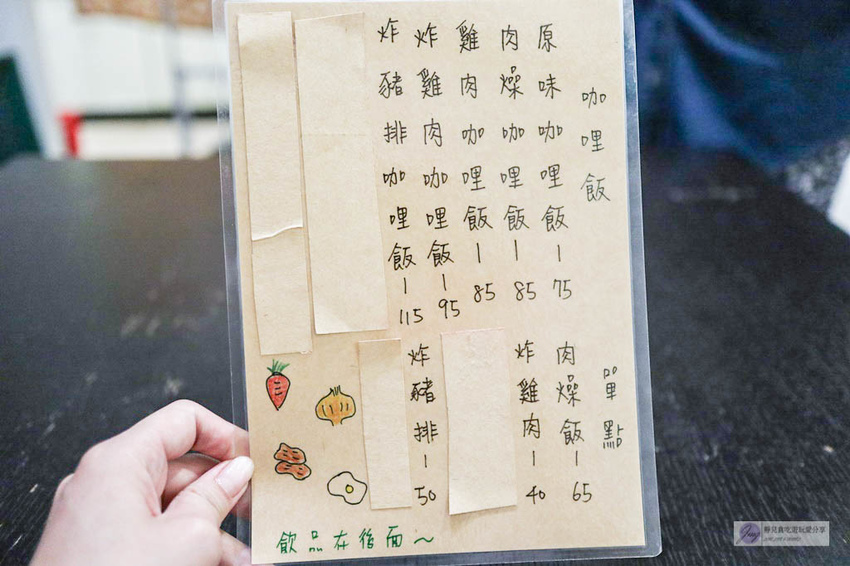 咖哩飯
原味咖哩飯-75
肉燥咖哩飯-85
雞肉咖哩飯-85
炸雞肉咖哩飯-95
炸豬排咖哩飯-115
單點
肉燥飯-65
炸雞肉-40
炸豬排-50
飲品在後面~